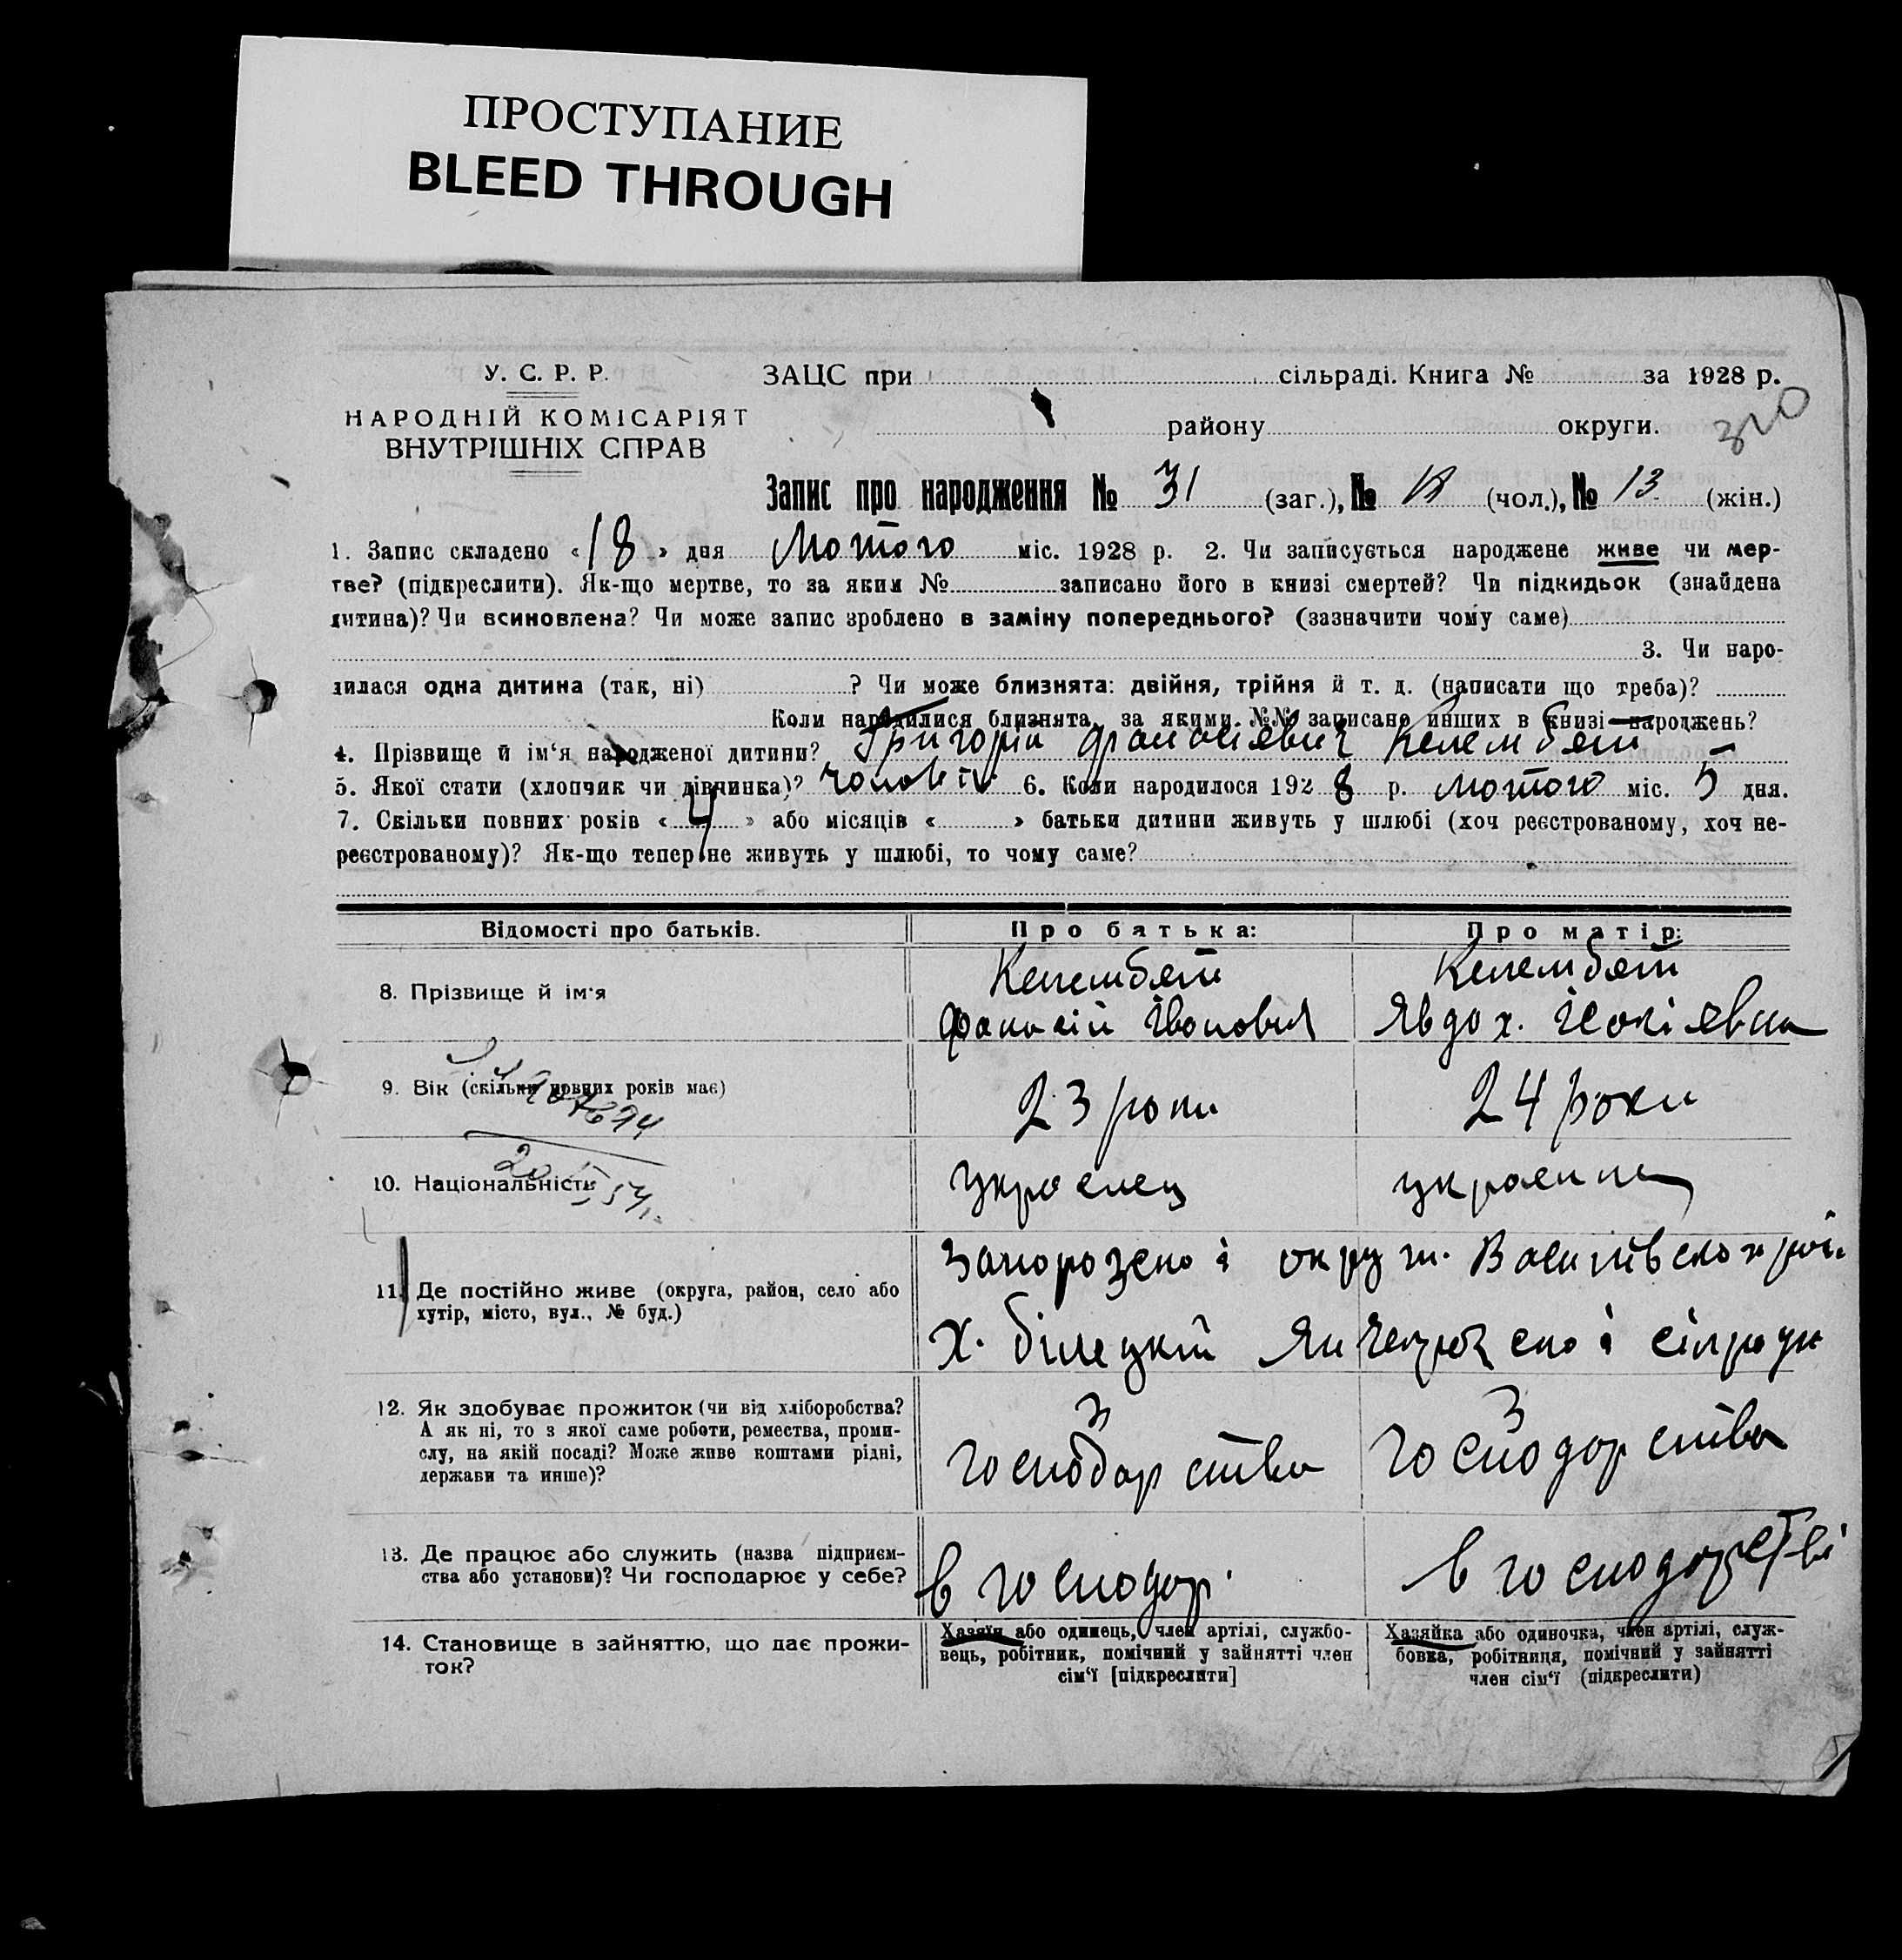 ПРОСТУПАНИЕ
BLEED THROUGH
У. С. Р. Р.
НАРОДНІЙ КОМІСАРІЯТ
ВНУТРІШНІХ СПРАВ
ЗАЦС при сільраді. Книга № за 1928 р.
району округи.
Запис про народження № 31 (заг.), № (чол.), № 13 (жін.)
1. Запис складено « 18 » дня Лютого міс. 1928 р. 2. Чи записується народжене живе чи мер-
тве? (підкреслити). Як-що мертве, то за яким № записано його в книзі смертей? Чи підкидьок (знайдена
дитина)? Чи всиновлена? Чи може запис зроблено в заміну попереднього? (зазначити чому саме)
3. Чи наро-
дилася одна дитина (так, ні) ? Чи може близнята: двійня, трійня й т. д. (написати що треба)?
Коли народилися близнята, за якими №№ записано инших в книзі народжень?
4. Прізвище й ім‘я народженої дитини? Григорій Фанасієвич Келембет
5. Якої стати (хлопчик чи дівчинка)? 6. Коли народилося 1928 р. лютого міс. 5 дня.
7. Скільки повних років « 4 » або місяців « » батьки дитини живуть у шлюбі (хоч реєстрованому, хоч не-
реєстрованому)? Як-що тепер не живуть у шлюбі, то чому саме?
Відомості про батьків.
Про батька:
Про матір:
8. Прізвище й ім‘я
Келембет
Фанасій Іванович
Келембет
Явдох.
9. Вік (скільки повних років має)
23 роки
24 роки
10. Національність
украенец
украенка
11. Де постійно живе (округа, район, село або
хутір, місто, вул., № буд.)
Запорозкоі округи. Василівського рай.
х. білецкій сілради
12. Як здобуває прожиток (чи від хліборобства?
А як ні, то з якої саме роботи, ремества, проми-
слу, на якій посаді? Може живе коштами рідні,
держави та инше)?
З
господарства
З
господарства
13. Де працює або служить (назва підприєм-
ства або установи)? Чи господарює у себе?
в господар.
в господарстві
14. Становище в зайняттю, що дає прожи-
ток?
Хазяїн або одинець, член артілі, службо-
вець, робітник, помічний у зайнятті член
сім‘ї [підкреслити]
Хазяйка або одиночка, член артілі, служ-
бовка, робітниця, помічний у зайнятті
член сім‘ї (підкреслити)